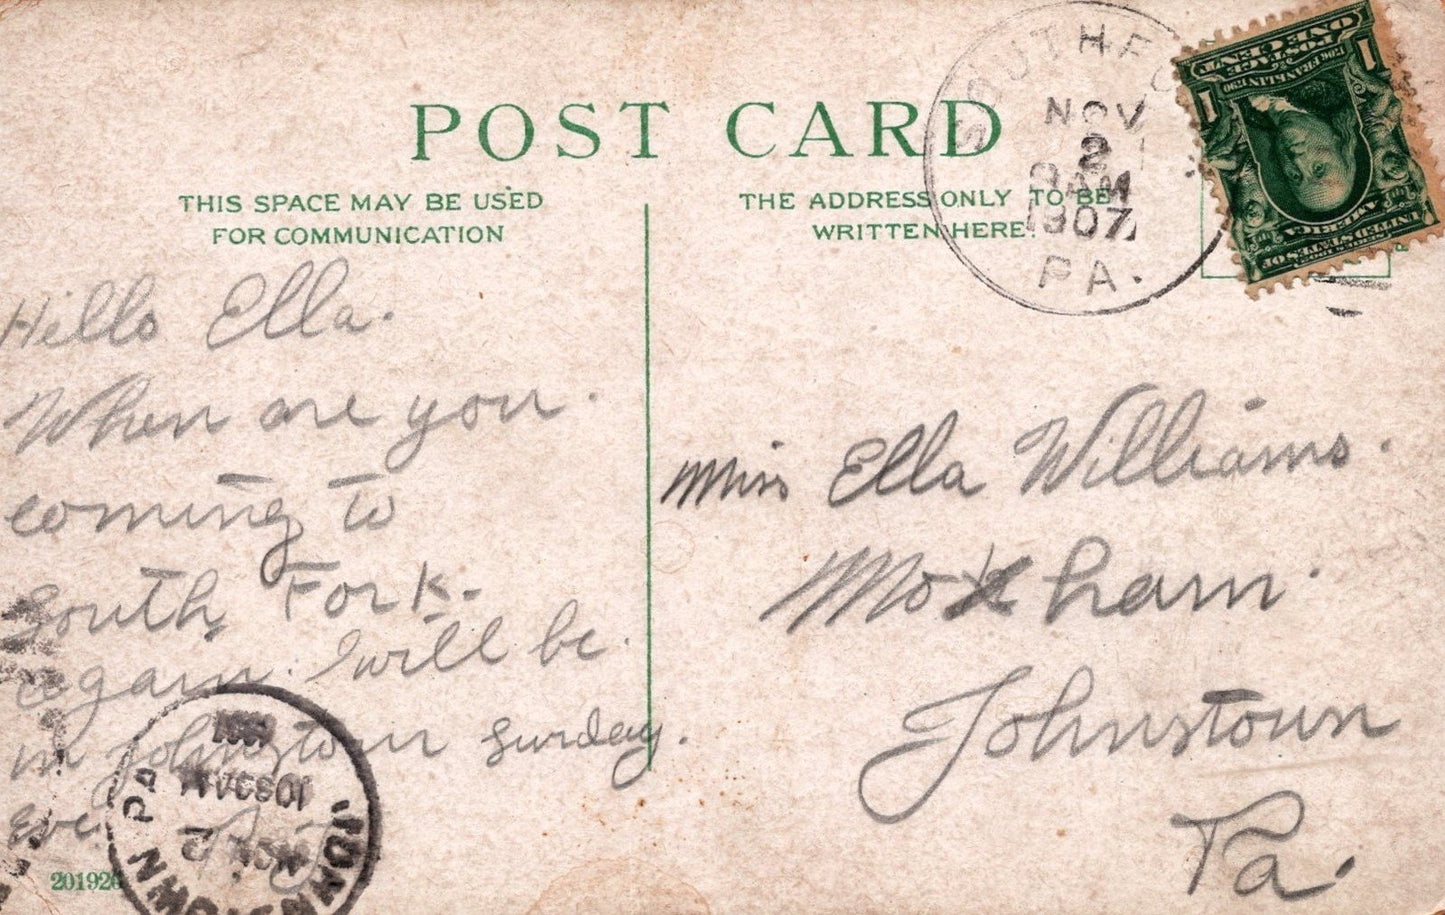 POST CARD
THIS SPACE MAY BE USED
FOR COMMUNICATION
THE ADDRESS ONLY TO BE
WRITTEN HERE.
SOUTH FO
NOV
2
AM
1907
PA.
ONE CENT
POSTAGE
1 1
UNITED STATES OF
AMERICA
Hello Ella.
When are you
coming to
South Fork.
again. I will be
in Johnstown Sunday.
eve.
Miss Ella Williams.
Moxham.
Johnstown
Pa.
1030AM
NOV 2
PA
201926